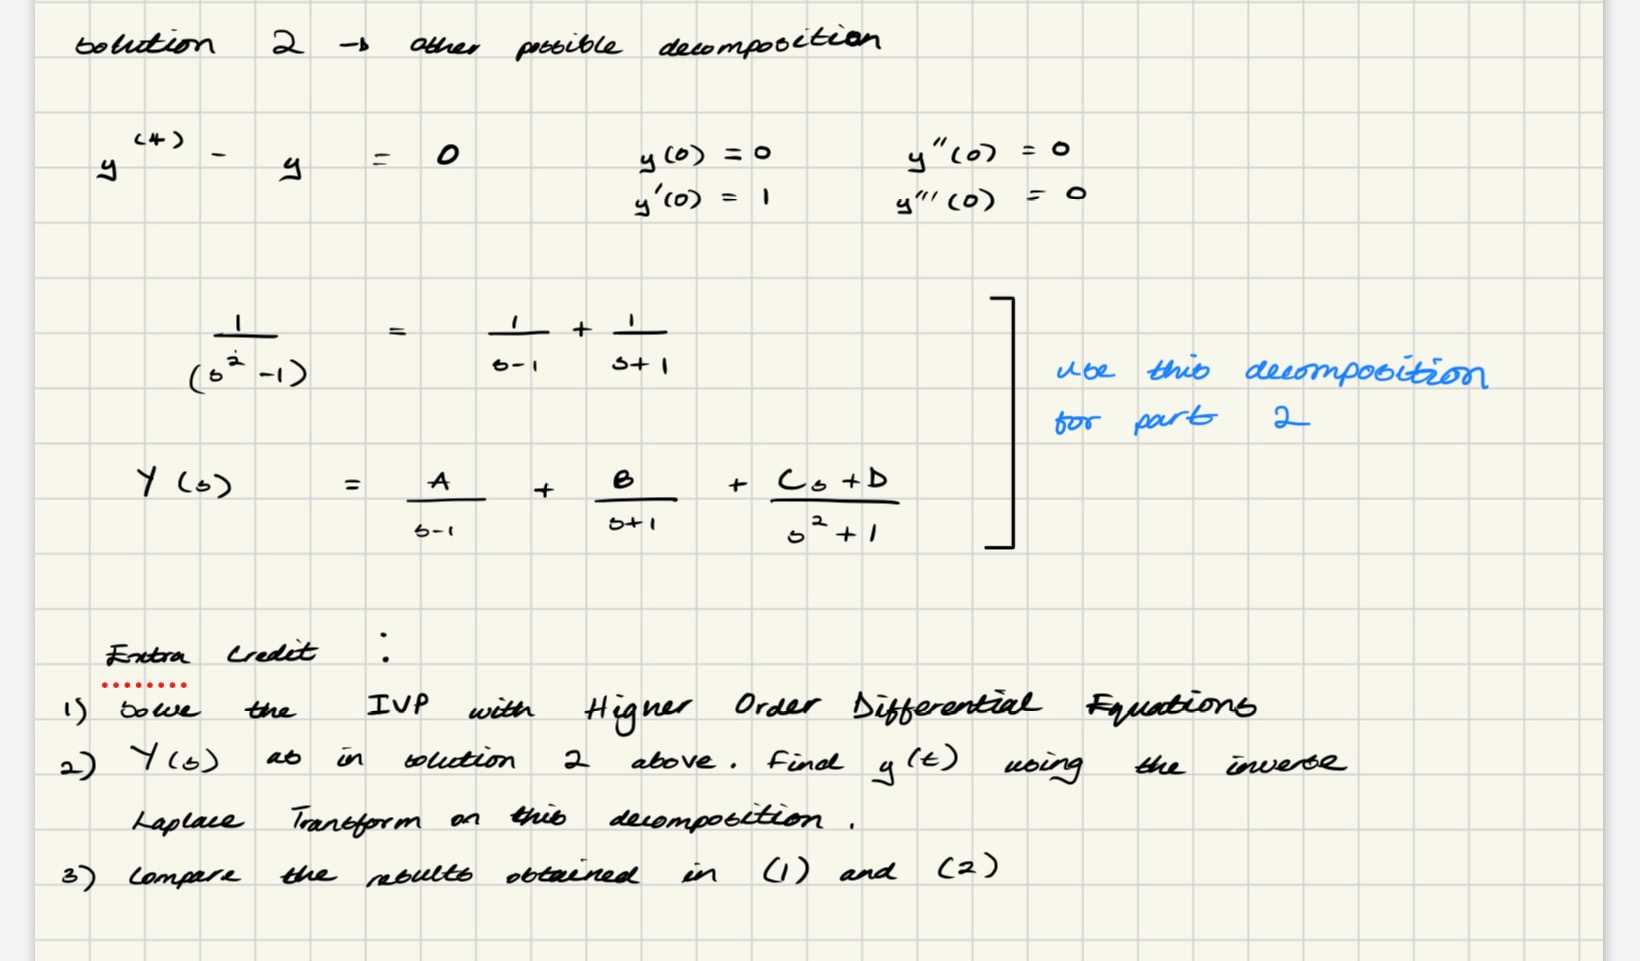 Solution 2 → other possible decomposition
y^(4) - y = 0 y(0) = 0 y''(0) = 0
y'(0) = 1 y'''(0) = 0
1/(s^2 - 1) = 1/(s-1) + 1/(s+1)
use this decomposition
for part 2
Y(s) = A/(s-1) + B/(s+1) + (Cs + D)/(s^2 + 1)
Extra Credit :
1) Solve the IVP with Higher Order Differential Equations
2) Y(s) as in solution 2 above. Find y(t) using the inverse
Laplace Transform on this decomposition.
3) Compare the results obtained in (1) and (2)